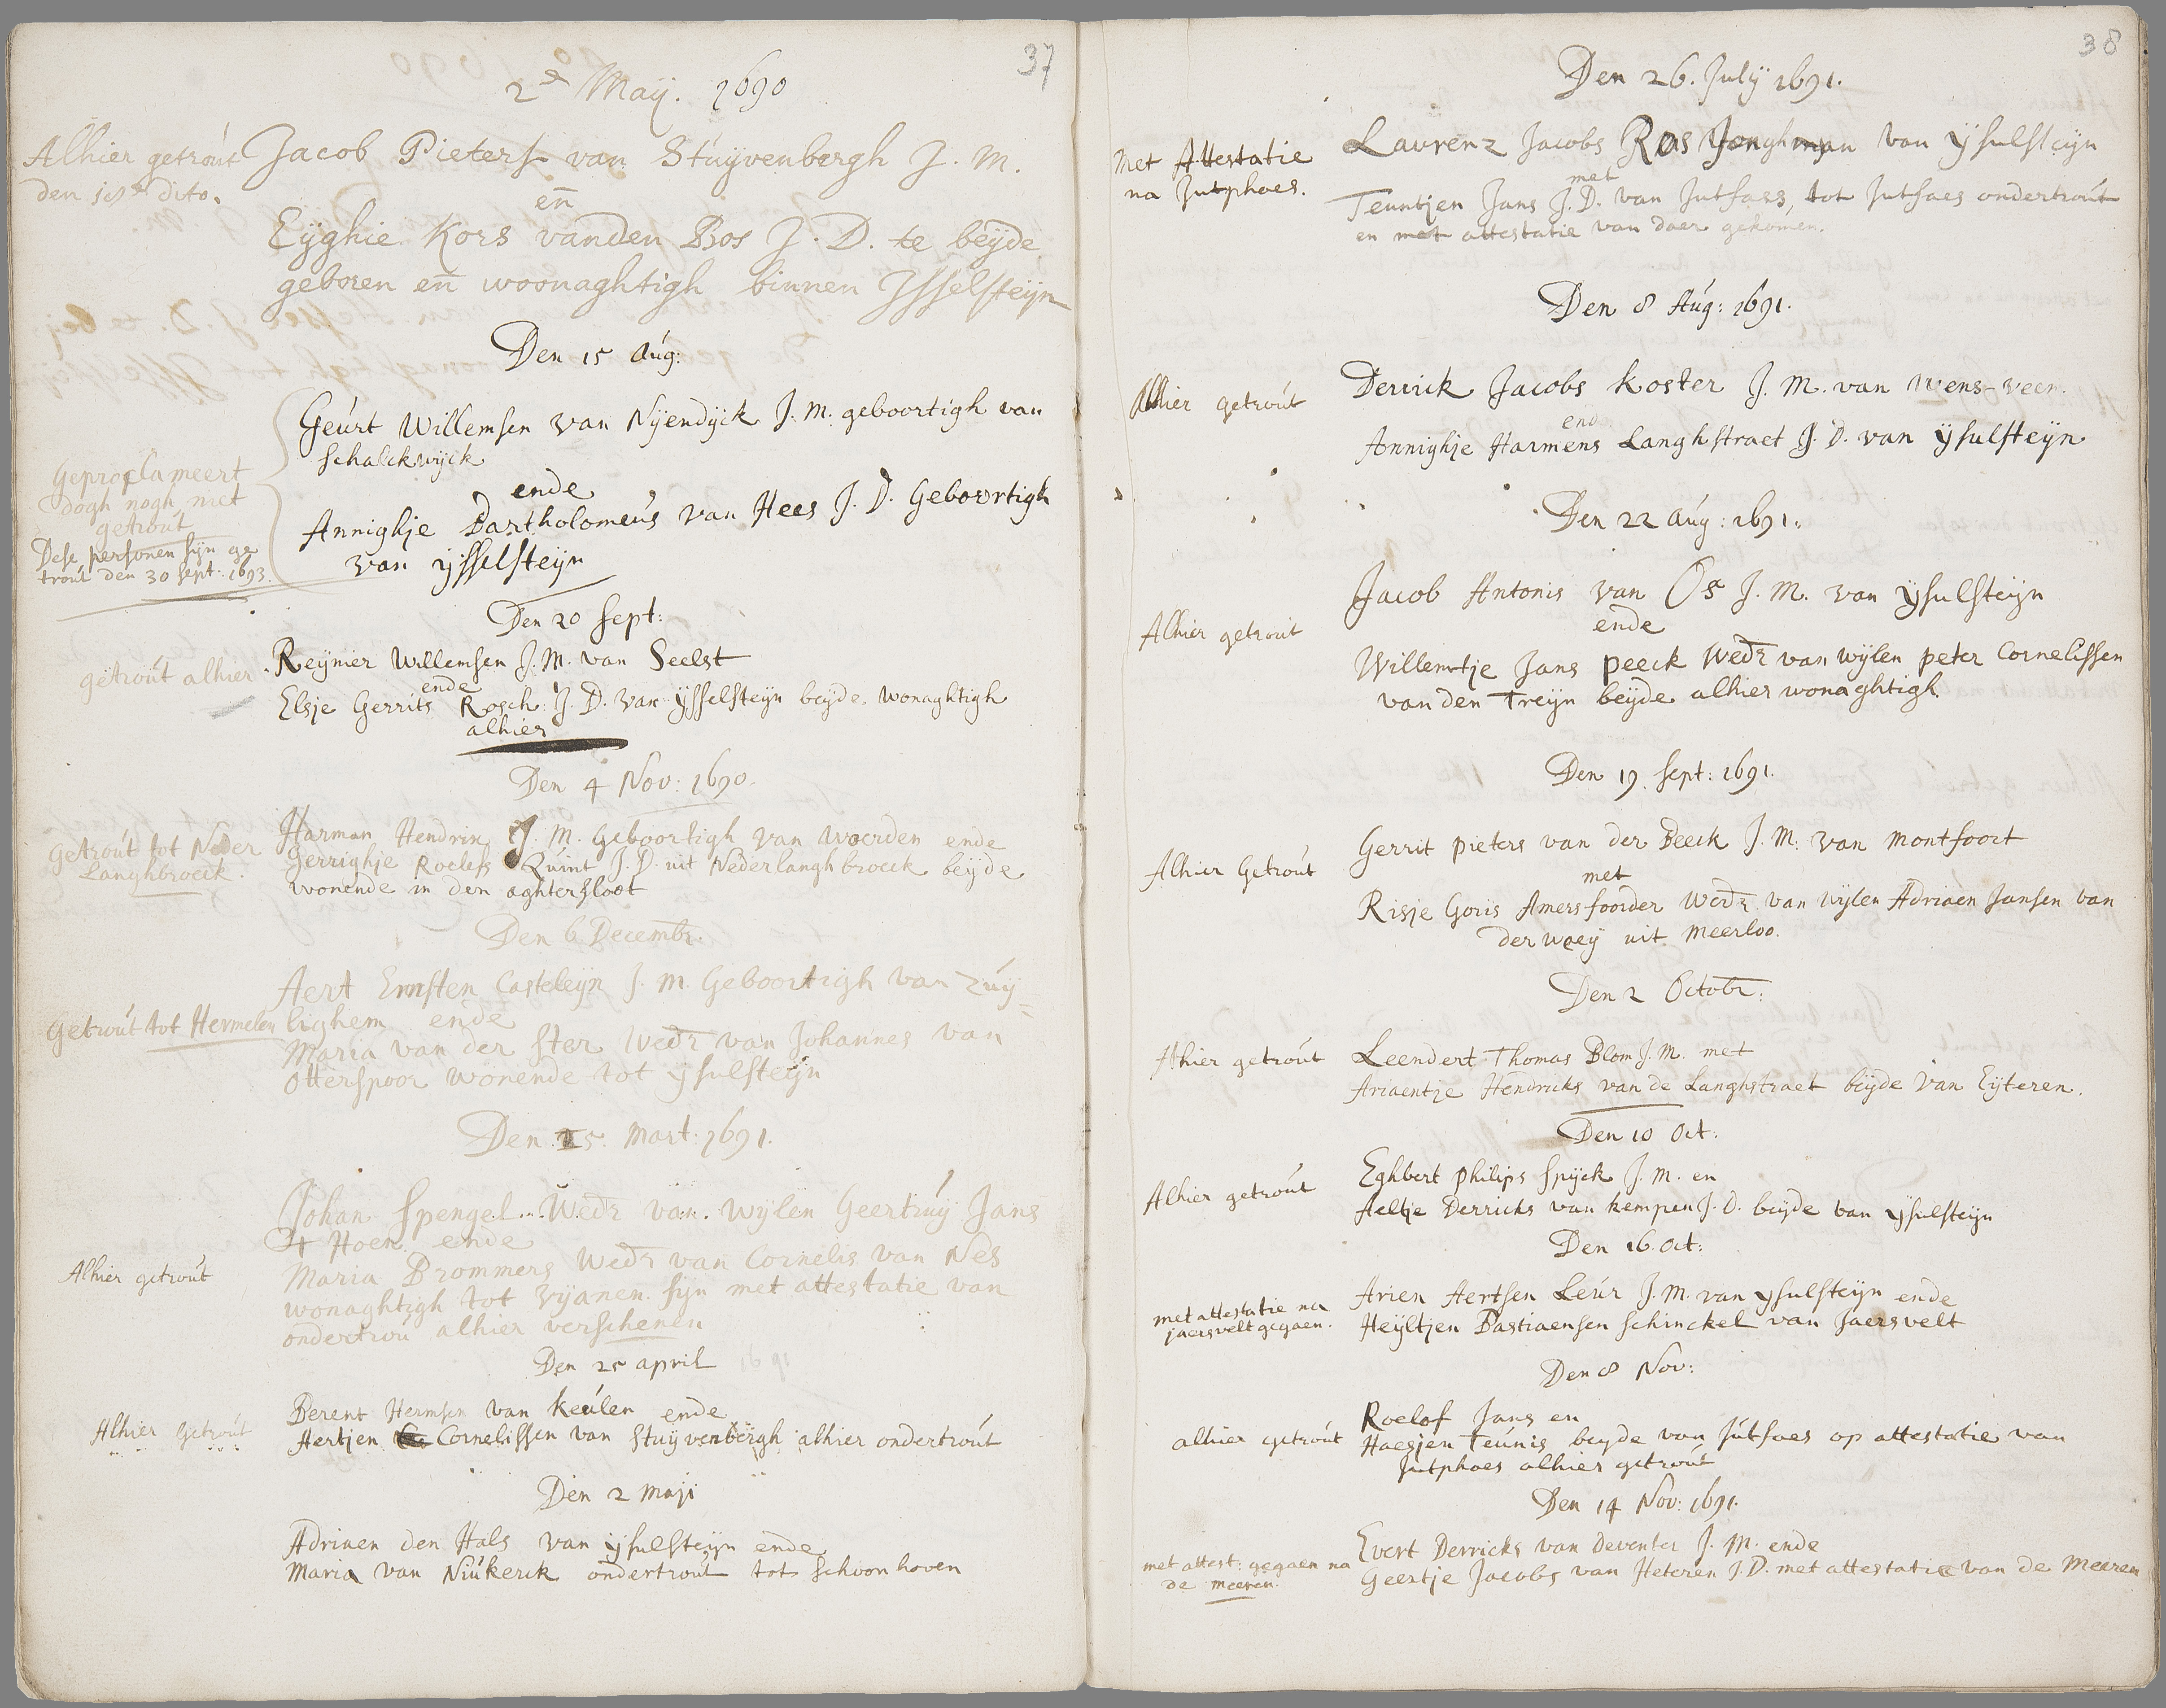 37
2e May. 1690
Alhier getrout
den 15de dito.
Jacob Pieterse van Stuyvenbergh J. M.
en̄
Eyghie Kors vanden Bos J. D. te beyde
geboren en̄ woonaghtigh binnen Isselsteyn
Den 15 Aug:
Geurt Willemsen van Nyendyck J. M. geboortigh van
Schalckwyck
ende
Annighje Bartholomeus van Hees J. D. Geboortigh
van ysselsteyn
Geproclameert
dogh nogh niet
getrout
Dese personen syn ge
trout den 30 Sept: 1693.
Den 20 Sept:
getrout alhier
Reynier Willemsen J. M. van Seelst
ende
Elsje Gerrits Rosch J. D. van ysselsteyn beyde wonaghtigh
alhier
Den 4 Nov: 1690.
Getrout tot Neder
Langhbroeck.
Harman Hendrix J. M. Geboortigh van Woerden ende
Gerrighje Roelefs Quint J. D. uit Nederlanghbroeck beyde
wonende in den aghtersloot
Den 6 Decembr:
Getrout tot Hermelen
Aert Ernsten Casteleyn J. M. Geboortigh van Zuy=
lighem ende
Maria van der Ster Wedr van Johannes van
Otterspoor wonende tot ysulsteyn
Den 25 Mart: 1691.
Alhier getrout
Johan Spengel Wedr van Wylen Geertruy Jans
't Hoen ende
Maria Brommers Wedr van Cornelis van Nes
wonaghtigh tot Vyanen syn met attestatie van
ondertrou alhier verschenen
Den 25 april
Alhier Getrout
Berent Hermsen van Keulen ende
Aertjen Cornelissen van Stuyvenbergh alhier ondertrout
Den 2 Maji
Adriaen den Hals van ysulsteyn ende
Maria van Niukerck ondertrout tot Schoonhoven
38
Den 26. July 1691.
Met Attestatie
na Jutphaes.
Laurenz Jacobs Ras Jonghman van ysulsteyn
met
Teuntjen Jans J. D. van Jutfaes, tot Jutfaes ondertrout
en met attestatie van daer gekomen.
Den 8 Aug: 1691.
Alhier getrout
Derrick Jacobs Koster J. M. van Wens-veen.
end
Annighje Harmens Langhstraet J. D. van ysulsteyn
Den 22 Aug: 1691.
Alhier getrout
Jacob Antonis van Os J. M. van ysulsteyn
ende
Willemtje Jans Peeck Wedr van wylen Peter Cornelissen
van den Treyn beyde alhier wonaghtigh.
Den 19 Sept: 1691.
Alhier Getrout
Gerrit Pieters van der Beeck J. M. van Montfoort
met
Risje Goris Amersfoorder Wedr van Wylen Adriaen Jansen van
der Waey uit Meerloo.
Den 2 Octobr:
Alhier getrout
Leendert Thomas Blom J. M. met
Ariaentje Hendricks van de Langhstraet beyde van Eyteren.
Den 10 Oct:
Alhier getrout
Eghbert Philips Spyck J. M. en
Aeltje Derricks van Kempen J. D. beyde van ysulsteyn
Den 16. Oct:
met attestatie na
jaersvelt gegaen.
Arien Aertsen Leur J. M. van ysulsteyn ende
Heyltjen Bastiaensen Schinckel van Jaersvelt
Den 8 Nov:
alhier getrout
Roelof Jans en
Haesjen Teunis beyde van Jutfaes op attestatie van
Jutphaes alhier getrout
Den 14 Nov: 1691.
met attest: gegaen na
de Meeren.
Evert Derricks van Deventer J. M. ende
Geertje Jacobs van Heteren J. D. met attestatie van de Meeren